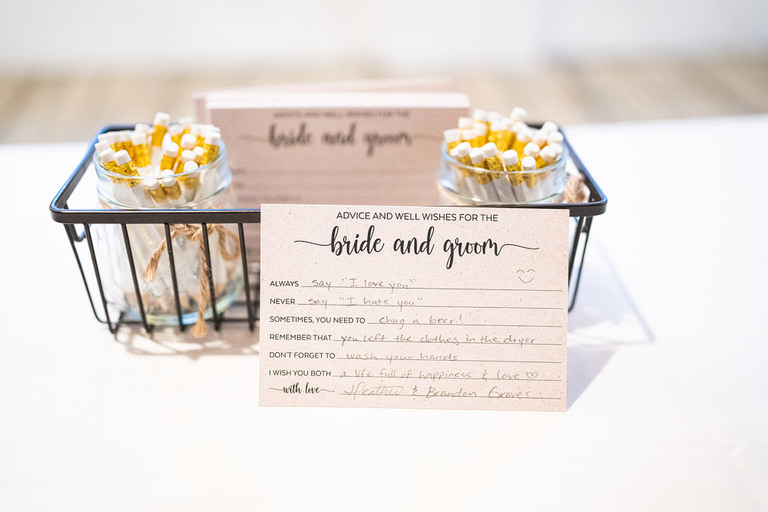 ADVICE AND WELL WISHES FOR THE
bride and groom
ADVICE AND WELL WISHES FOR THE
bride and groom
ALWAYS say "I love you"
NEVER say "I hate you"
SOMETIMES, YOU NEED TO chug a beer!
REMEMBER THAT you left the clothes in the dryer
DON'T FORGET TO wash your hands
I WISH YOU BOTH a life full of happiness & love ♡
with love Heather & Brandon Groves